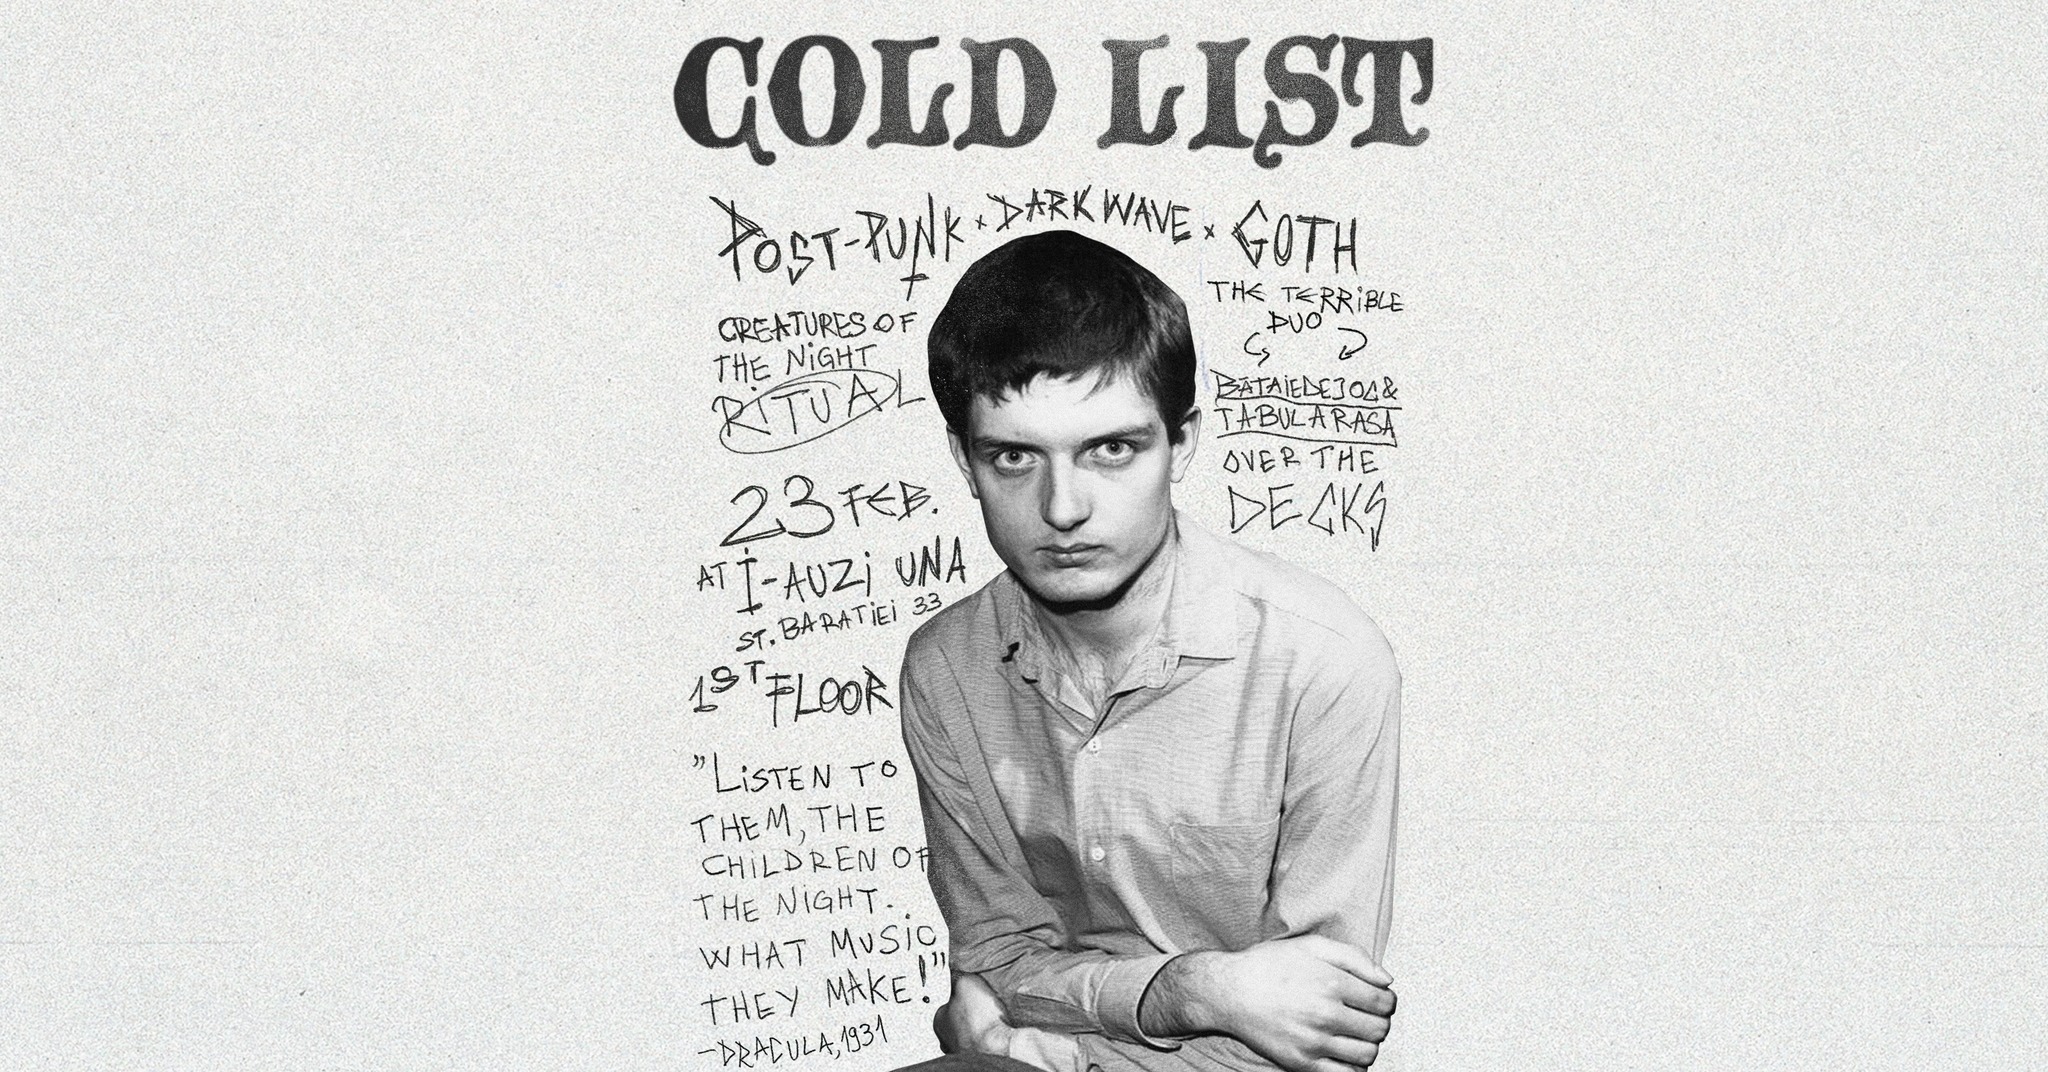 COLD LIST
POST-PUNK x DARKWAVE x GOTH
CREATURES OF
THE NIGHT
RITUAL
23 FEB.
AT I-AUZi UNA
ST. BARATiEi 33
1ST FLOOR
"LiSTEN TO
THEM, THE
CHiLDREN OF
THE NiGHT.
WHAT MUSiC
THEY MAKE!"
-DRACULA, 1931
THE TERRiBLE
DUO
BĂTAiEDEJOC &
TABULARASA
OVER THE
DECKS